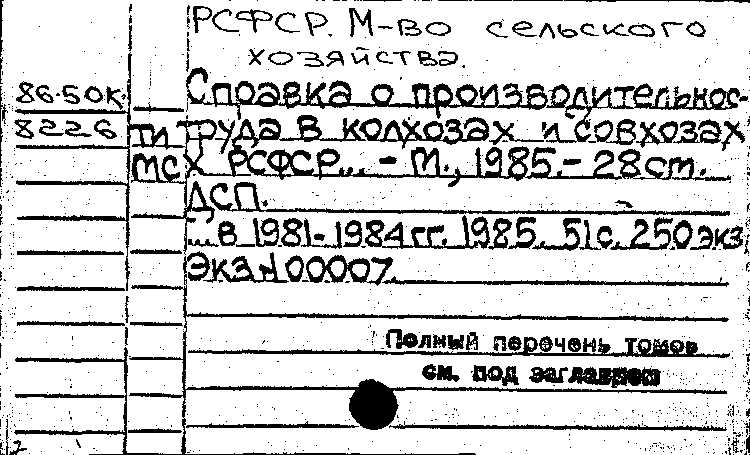 РСФСР. М-во сельского
хозяйства.
86-50К Справка о производительнос-
8226 ти труда в колхозах и совхозах
МСХ РСФСР... - М., 1985. - 28 ст.
ДСП.
... в 1981-1984 гг. 1985. 51 с. 250 экз
Экз № 00007.
Полный перечень томов
см. под заглавием
2